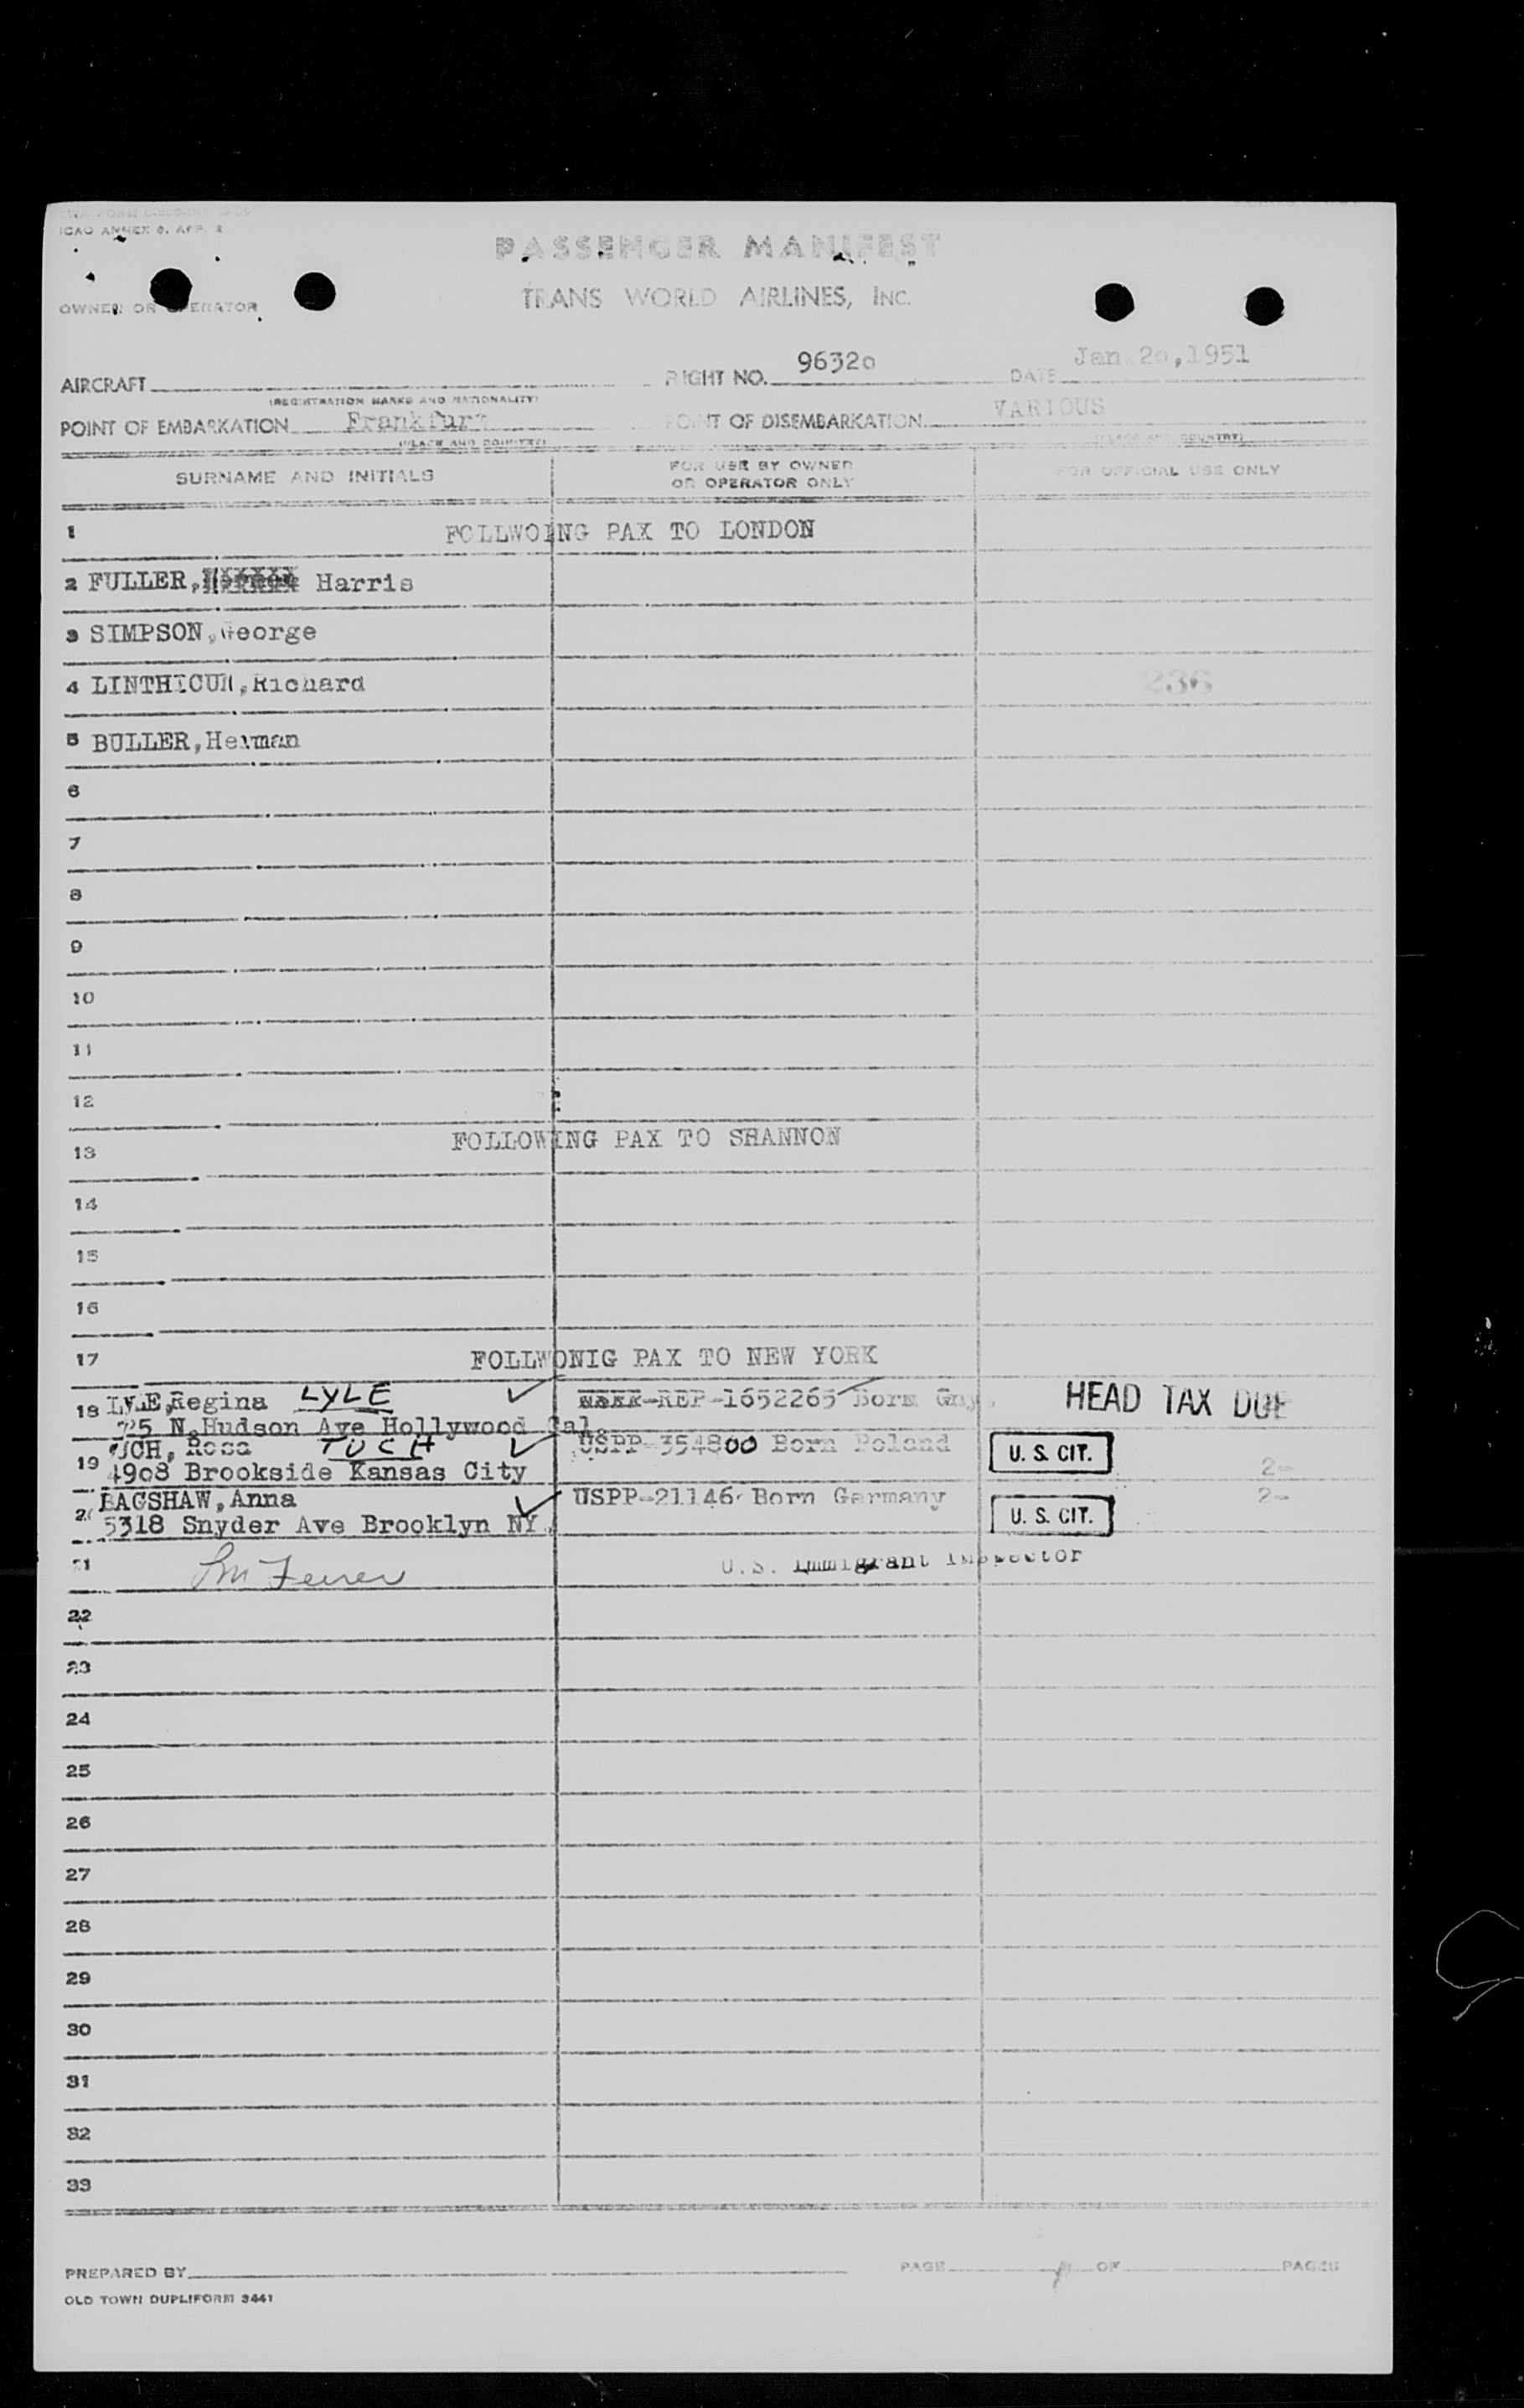 ICAO ANNEX 9, APP. 2
PASSENGER MANIFEST
TRANS WORLD AIRLINES, INC.
OWNER OR OPERATOR
AIRCRAFT
(REGISTRATION MARKS AND NATIONALITY)
FLIGHT NO. 9632o
DATE Jan 2o,1951
POINT OF EMBARKATION Frankfurt
(PLACE AND COUNTRY)
POINT OF DISEMBARKATION VARIOUS
(PLACE AND COUNTRY)
SURNAME AND INITIALS
FOR USE BY OWNER
OR OPERATOR ONLY
FOR OFFICIAL USE ONLY
1 FOLLWOING PAX TO LONDON
2 FULLER, Harris
3 SIMPSON,George
4 LINTHICUM,Richard 236
5 BULLER,Herman
6
7
8
9
10
11
12
13 FOLLOWING PAX TO SHANNON
14
15
16
17 FOLLWONIG PAX TO NEW YORK
18 LYLE,Regina LYLE REP-1652265 Born HEAD TAX DUE
N.Hudson Ave Hollywood Cal
19 TUCH, Rosa TUCH USPP-354800 Born Poland U. S. CIT. 2-
49o8 Brookside Kansas City
20 BAGSHAW,Anna USPP-21146 Born Germany U. S. CIT. 2-
5318 Snyder Ave Brooklyn NY.
21 U.S. Immigrant Inspector
22
23
24
25
26
27
28
29
30
31
32
33
PREPARED BY
PAGE OF PAGES
OLD TOWN DUPLIFORM 3441